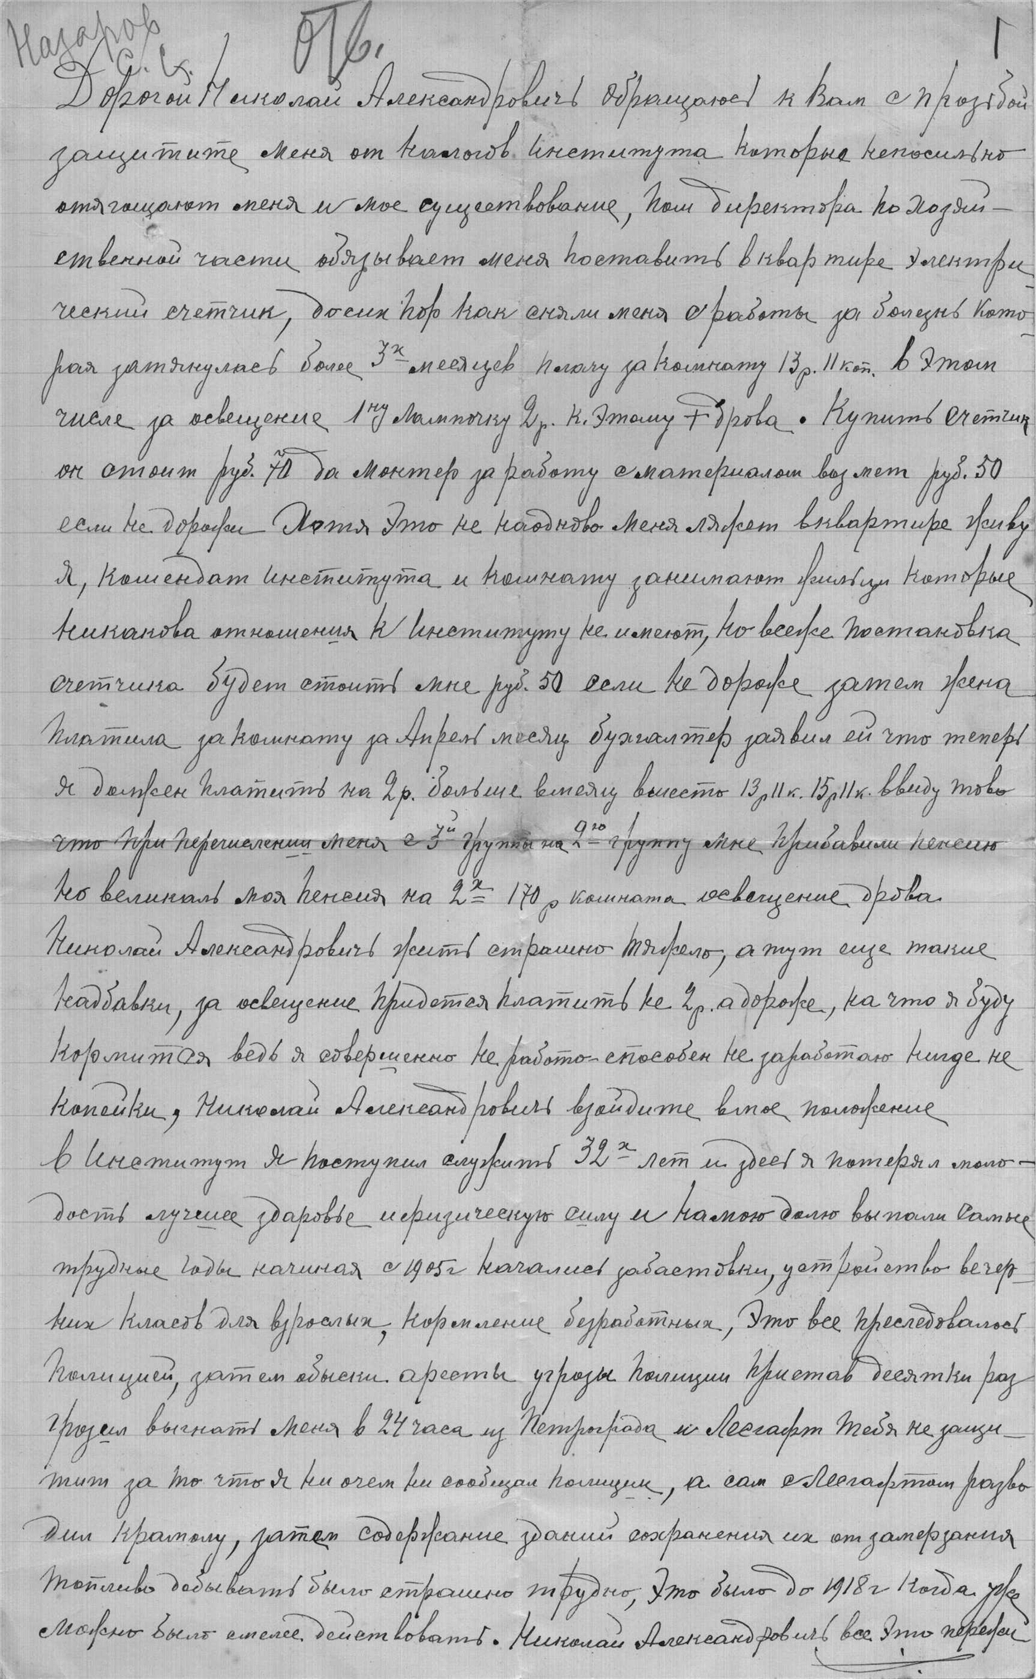 Назаров
С. К.
Отв.
1
Дорогой Николай Александровичь обращаюсь к Вам с прозьбой
защитите меня от налогов Института которые непосильно
отягощают меня и мое существование, пом директора по Хозяй-
ственной части обязывает меня поставить в квартире электри
ческий счетчик, досих пор как сняли меня с работы за болезнь кото-
рая затянулась более 3х месяцев плачу за комнату 13р. 11 коп. в этом
числе за освещение 1ну лампочку 2р. к. этому + дрова. Купить счетчик
он стоит руб. 70 да монтер за работу с материалом возмет руб. 50
если не дороже Хотя это не наодново меня ляжет в квартире живу
я, комендат института и комнату занимают жильцы которые
никакова отношения к Институту не имеют, но всеже постановка
счетчика будет стоить мне руб. 50 если не дороже затем жена
платила за комнату за Апрель месяц бухгалтер заявил ей что теперь
я должен платить на 2р. больше вмесяц вместо 13р11к. 15р11к. ввиду тово
что при перечислении меня с 3й группы на 2ю группу мне прибавили пенсию
но великаль моя пенсия на 2х 170р комната освещение дрова
Николай Александровичь жить страшно тяжело, а тут еще такие
надбавки, за освещение придется платить не 2р. а дороже, на что я буду
кормится ведь я совершенно не работо-способен не заработаю нигде не
копейки, Николай Александровичь взойдите вмое положение
в Институт я поступил служить 32х лет и здесь я потерял моло-
дость лучшее здаровье и физическую силу и намою долю выпали самые
трудные годы начиная с 1905г начались забастовки, устройство вечер-
них класов для взрослых, кормление безработных, это все преследовалось
полицией, затем обыски аресты угрозы полиции пристав десятки раз
грозил выгнать меня в 24 часа из Петрограда и Лесгафт тебя не защи-
тит за то что я ни очем ни сообщал полиции, а сам с Лесгафтом разво
дил крамолу, затем содержание зданий сохранения их от замерзания
топливо добывать было страшно трудно, это было до 1918г когда уже
можно было смелее действовать. Николай Александровичь все это пережи